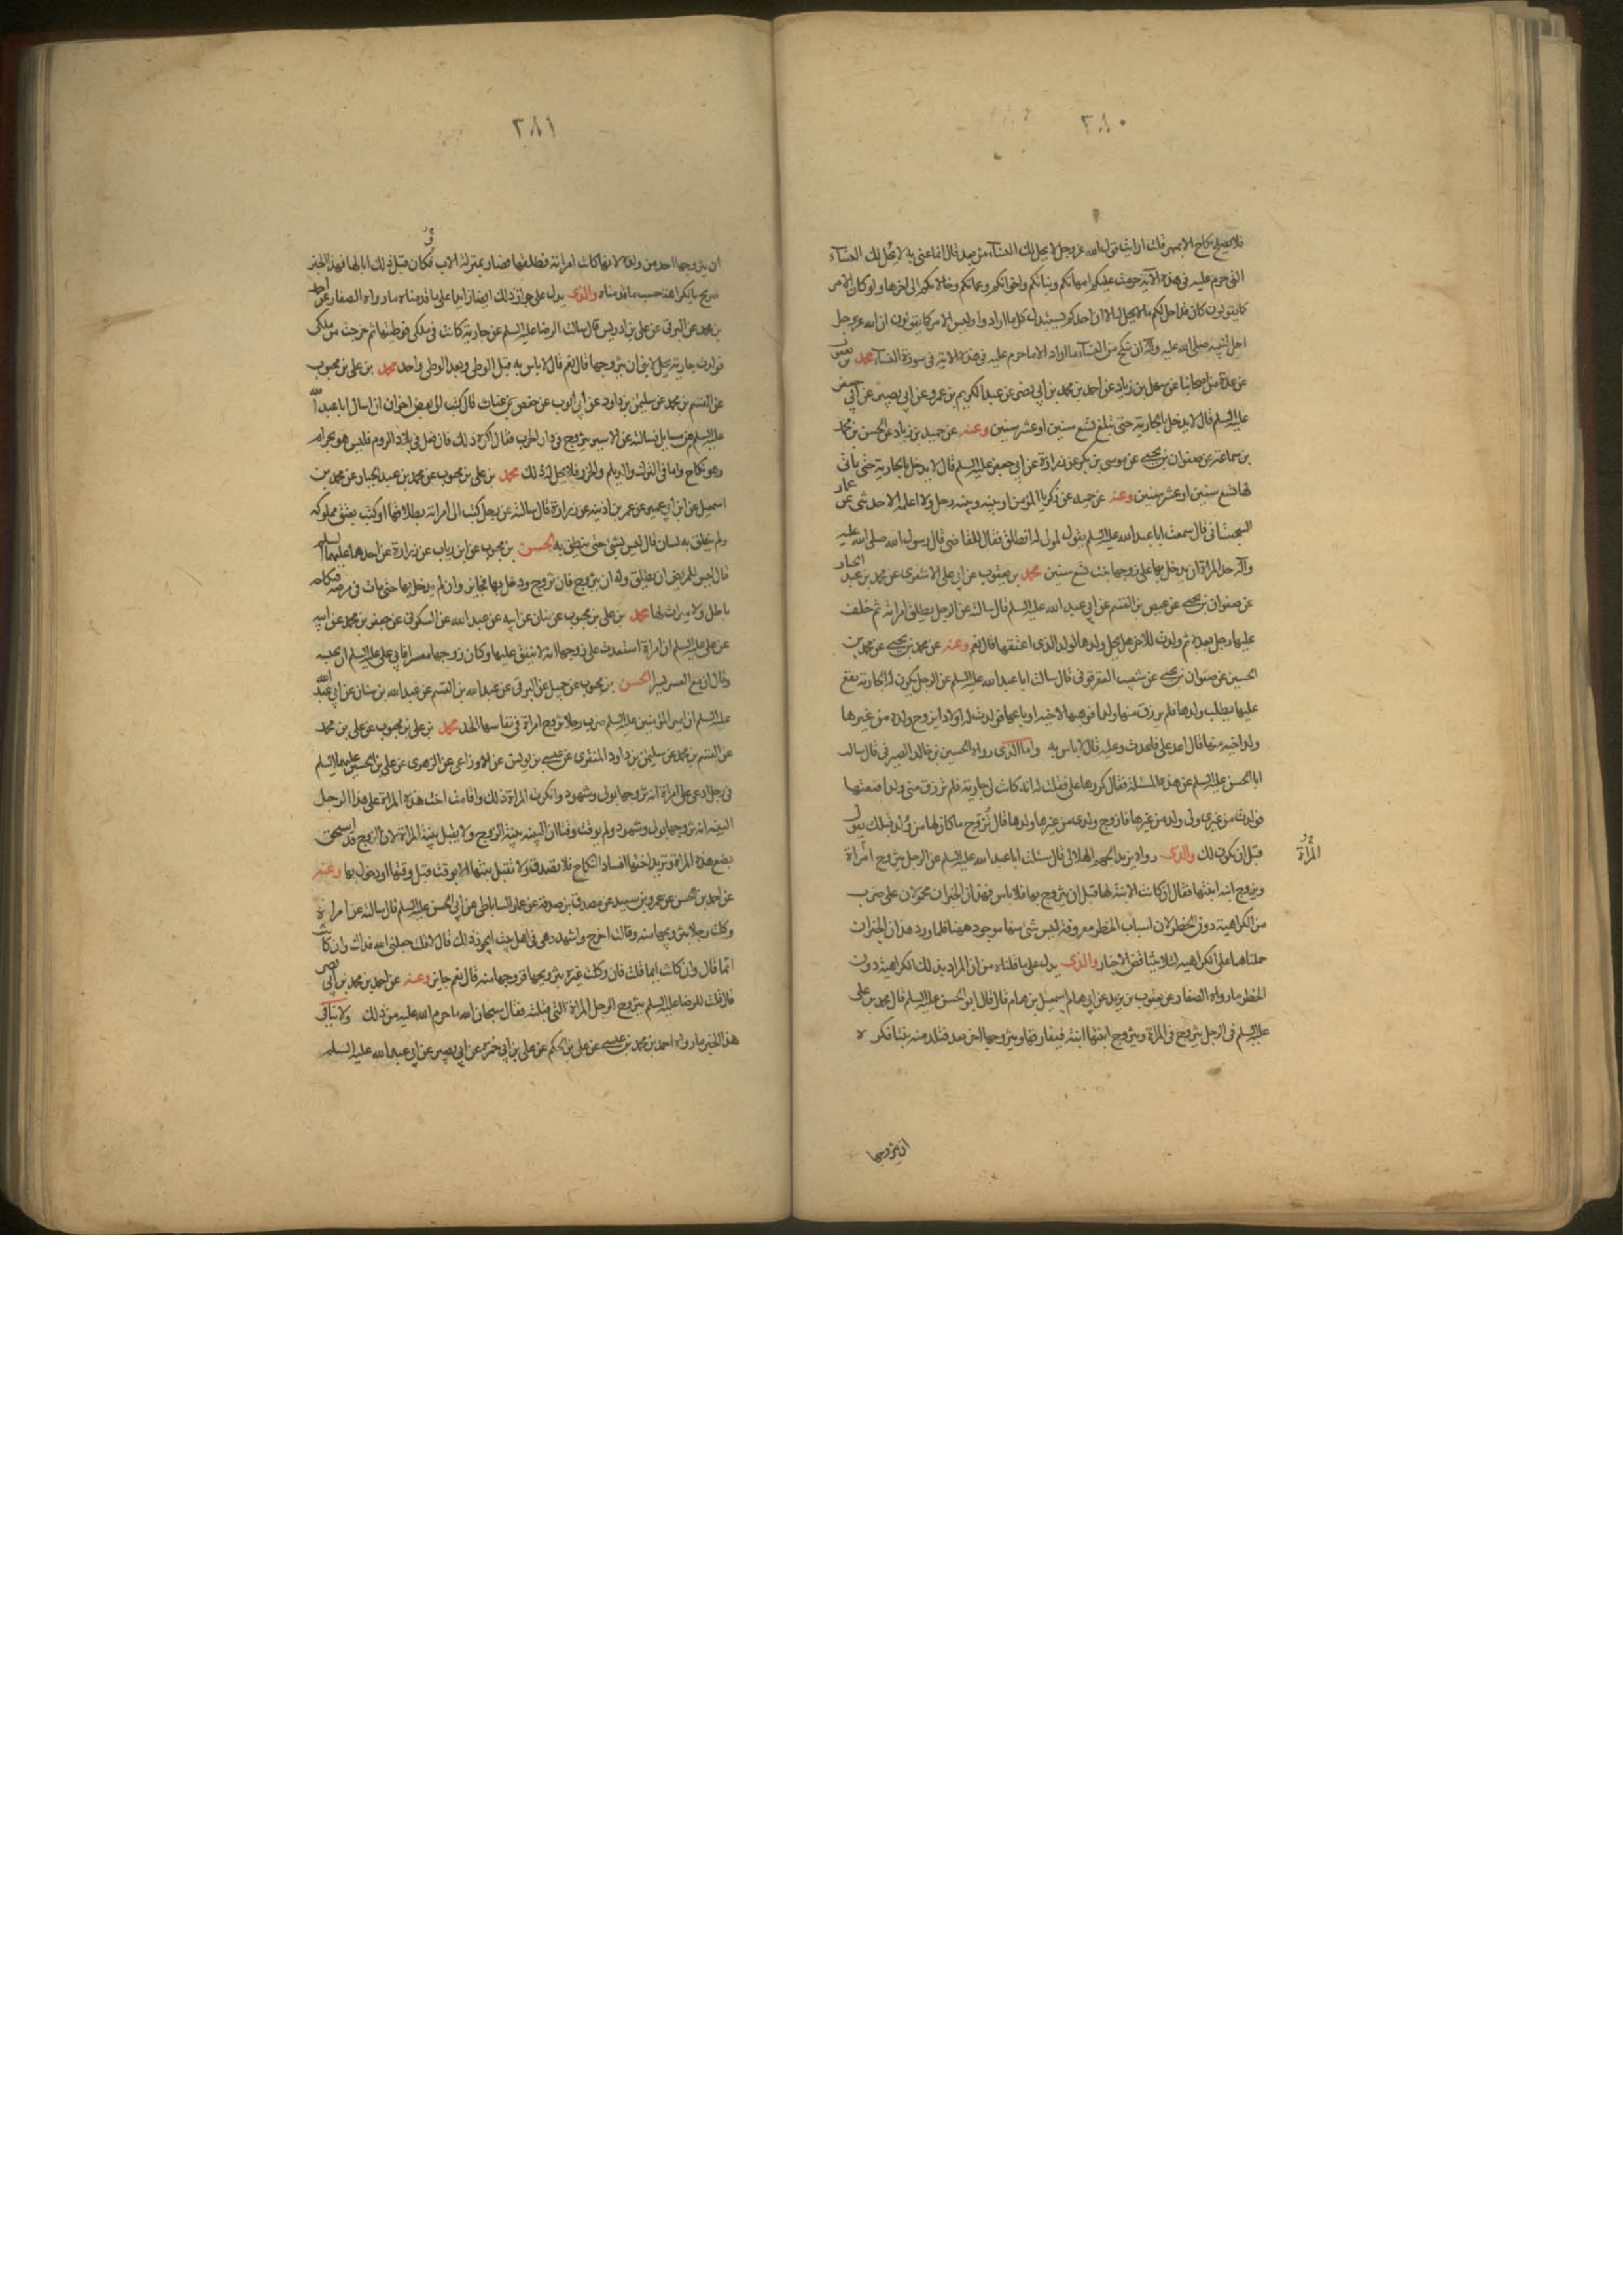 ٢٨٠
فلا يصلح نكاح الا بمهر قلت ارايت قول الله عز وجل لا يحل لك النساء من بعد فقال انما عنى به لا يحل لك النساء
التى حرم عليه فى هذه الآية حرمت عليكم امهاتكم وبناتكم واخواتكم وعماتكم وخالاتكم الى اخرها ولو كان الامر
كما يقولون كان قد احل لكم ما لا يحل له لان احدكم يستبدل كلما اراد وليس الامر كما يقولون ان الله عز وجل
احل لنبيه صلى الله عليه وآله ان ينكح من النساء ما اراد الا ما حرم عليه فى هذه الاية فى سورة النساء محمد بن يعقوب
عن عدة من اصحابنا عن سهل بن زياد عن احمد بن محمد بن ابى نصر عن عبد الكريم بن عمرو عن ابى بصير عن ابى جعفر
عليه السلم قال لا يدخل بالجارية حتى تبلغ تسع سنين او عشر سنين وعنه عن حميد بن زياد عن الحسن بن محمد
بن سماعة عن صفوان بن يحيى عن موسى بن بكر عن زرارة عن ابى جعفر عليه السلم قال لا يدخل بالجارية حتى ياتى
لها تسع سنين او عشر سنين وعنه عن حميد عن زكريا المؤمن او بينه وبينه رجل ولا اعلمه الا حدثنى عن عمار
السجستانى قال سمعت ابا عبد الله عليه السلم يقول لمولى له انطلق فقل للقاضى قال رسول الله صلى الله عليه
وآله حد المراة ان يدخل بها على زوجها بنت تسع سنين محمد بن يعقوب عن ابى على الاشعرى عن محمد بن عبد الجبار
عن صفوان بن يحيى عن عيص بن القسم عن ابى عبد الله عليه السلم قال سالته عن الرجل يطلق امراته ثم خلف
عليها رجل بعده ثم ولدت للاخر هل يحل ولدها لولد الذى اعتقها قال نعم وعنه عن محمد بن يحيى عن محمد بن
الحسين عن صفوان بن يحيى عن شعيب العقرقوفى قال سالت ابا عبد الله عليه السلم عن الرجل يكون له الجارية يقع
عليها يطلب ولدها فلم يرزق منها ولدا فوهبها لاخيه او باعها فولدت له اولادا يزوج ولده من غيرها
ولد اخيه منها قال اعد على فاعدت وعليه قال لا باس به واما الذى رواه الحسين بن خالد الصيرفى قال سالت
ابا الحسن عليه السلم عن هذه المسئلة فقال كررها على فقلت له انه كانت لى جارية فلم ترزق منى ولدا فبعتها
فولدت من غيرى ولى ولد من غيرها فازوج ولدى من غيرها ولدها قال تزوج ما كان لها من ولد قبلك يقول
قبل ان تكون لك والذى رواه يزيد بن الجهم الهلالى قال سئلت ابا عبد الله عليه السلم عن الرجل يتزوج امراة
المراة
ويزوج ابنه ابنتها فقال ان كانت الابنة لها قبل ان يتزوج بها فلا باس فهذان الخبران محمولان على ضرب
من الكراهية دون الحظر لان اسباب الحظر معروفة ليس شى منها موجود ههنا فلما ورد هذان الخبران
حملناهما على الكراهية لئلا يتناقض الاخبار والذى يدل على ما قلناه من ان المراد بذلك الكراهية دون
الحظر ما رواه الصفار عن يعقوب بن يزيد عن ابى همام اسمعيل بن همام قال قال ابو الحسن عليه السلم قال محمد بن على
عليه السلم فى الرجل يتزوج فى المراة ويتزوج ابنتها ابنه فيفارقها ويتزوجها اخر بعد فتلد منه بنتا فكره
ان يتزوجها
٢٨١
ان يتزوجها احد من ولده لانها كانت امراته فطلقها فصار بمنزلة الاب وكان قبل ذلك ابا لها فهذا الخبر
صريح بالكراهية حسب ما قدمناه والذى يدل على جواز ذلك ايضا زايدا على ما قدمناه ما رواه الصفار عن احمد
بن محمد عن البرقى عن على بن ادريس قال سالت الرضا عليه السلم عن جارية كانت فى ملكى فوطئتها ثم خرجت من ملكى
فولدت جارية يحل لابنى ان يتزوجها قال نعم قال لا باس به قبل الوطى وبعد الوطى واحد محمد بن على بن محبوب
عن القسم بن محمد عن سليمن بن داود عن ابى ايوب عن حفص بن غياث قال كتب الى بعض اخوانى ان اسال ابا عبد الله
عليه السلم عن مسايل فسالته عن الاسير يتزوج فى دار الحرب فقال اكره ذلك فان فعل فى بلاد الروم فليس هو بحرام
وهو نكاح واما فى الترك والديلم والخزر فلا يحل له ذلك محمد بن على بن محبوب عن محمد بن عبد الجبار عن محمد بن
اسمعيل عن ابن ابى عمير عن عمر بن اذينه عن زرارة قال سالته عن رجل كتب الى امراته بطلاقها او كتب بعتق مملوكه
ولم ينطق به لسانه قال ليس بشى حتى ينطق به الحسن بن محبوب عن ابن رياب عن زرارة عن احدهما عليهما السلم
قال ليس للمريض ان يطلق وله ان يتزوج فان تزوج ودخل بها فجايز وان لم يدخل بها حتى مات فى مرضه فنكاحه
باطل ولا ميراث لها محمد بن على بن محبوب عن بنان عن ابيه عن عبد الله عن السكونى عن جعفر بن محمد عن ابيه
عن على عليه السلم ان امراة استعدت على زوجها انه لا ينفق عليها وكان زوجها معسرا فابى على عليه السلم ان يحبسه
وقال ان مع العسر يسرا الحسن بن محبوب عن جميل عن البرقى عن عبد الله بن القسم عن عبد الله بن سنان عن ابى عبد الله
عليه السلم ان امير المؤمنين عليه السلم ضرب رجلا تزوج امراة فى نفاسها الحد محمد بن على بن محبوب عن على بن محمد
عن القسم بن محمد عن سليمن بن داود المنقرى عن عيسى بن يونس عن الاوزاعى عن الزهرى عن على بن الحسين عليهما السلم
فى رجل ادعى على امراة انه تزوجها بولى وشهود وانكرت المراة ذلك واقامت اخت هذه المراة على هذا الرجل
البينه انه تزوجها بولى وشهود ولم يوقت وقتا ان البينه بينة الزوج ولا يقبل بينة المراة لان الزوج قد استحق
بضع هذه المراة وتريد اختها افساد النكاح فلا تصدق ولا تقبل بينتها الا بوقت قبل وقتها او دخول بها وعنه
عن احمد بن الحسن عن عمرو بن سعيد عن مصدق بن صدقة عن عمار الساباطى عن ابى الحسن عليه السلم قال سالته عن امراة
وكلت رجلا يتزويجها منه وقالت اخرج واشهد وهى فى اهل بيت ايجوز ذلك قال لا قلت جعلنى الله فداك وان كانت
ايما قال وان كانت ايما قلت فان وكلت غيره بتزويجها فزوجها منه قال نعم جايز وعنه عن احمد بن محمد بن ابى نصر
قال قلت للرضا عليه السلم يتزوج الرجل المراة التى قبلته فقال سبحان الله ما حرم الله عليه من ذلك ولا ينافى
هذا الخبر ما رواه احمد بن محمد بن عيسى عن على بن الحكم عن على بن ابى حمزه عن ابى بصير عن ابى عبد الله عليه السلم